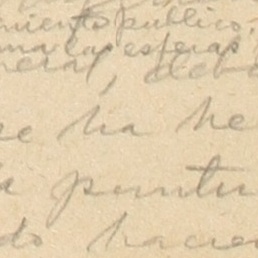 miento publico.
ma las esferas
neral, deb
se ha he
a puntu
do hacie